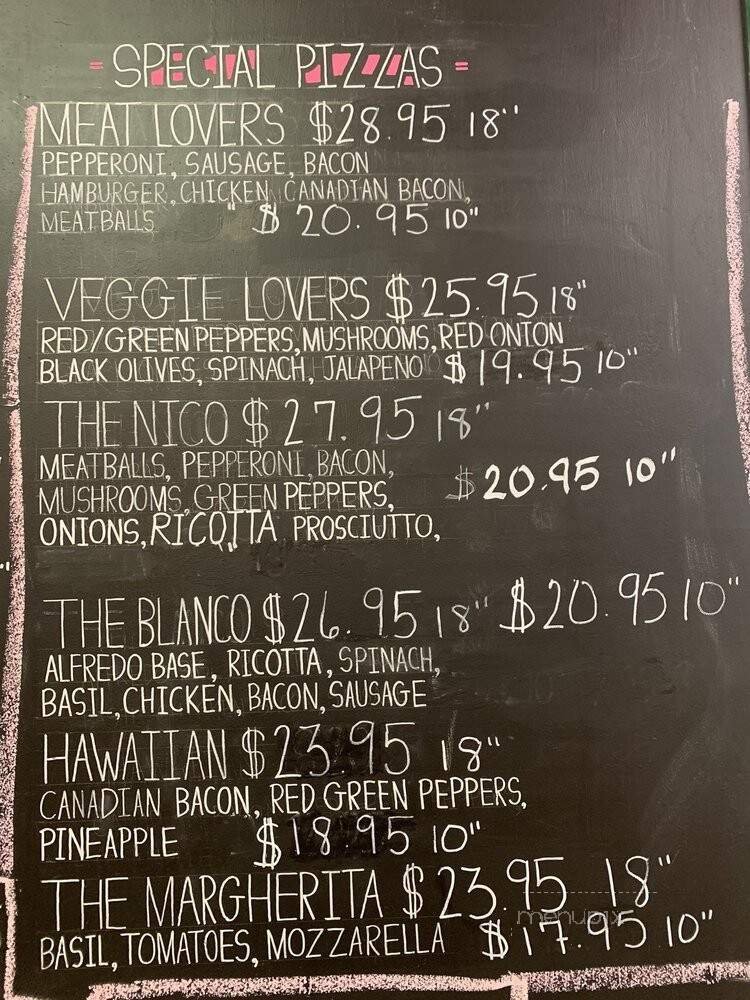 = SPECIAL PIZZAS =
MEAT LOVERS $28.95 18"
PEPPERONI, SAUSAGE, BACON
HAMBURGER, CHICKEN, CANADIAN BACON,
MEATBALLS $20.95 10"
VEGGIE LOVERS $25.95 18"
RED/GREEN PEPPERS, MUSHROOMS, RED ONION
BLACK OLIVES, SPINACH, JALAPENO $19.95 10"
THE NICO $27.95 18"
MEATBALLS, PEPPERONI, BACON,
MUSHROOMS, GREEN PEPPERS, $20.95 10"
ONIONS, RICOTTA PROSCIUTTO,
THE BLANCO $26.95 18" $20.95 10"
ALFREDO BASE, RICOTTA, SPINACH,
BASIL, CHICKEN, BACON, SAUSAGE
HAWAIIAN $23.95 18"
CANADIAN BACON, RED GREEN PEPPERS,
PINEAPPLE $18.95 10"
THE MARGHERITA $23.95 18"
menupix
BASIL, TOMATOES, MOZZARELLA $17.95 10"